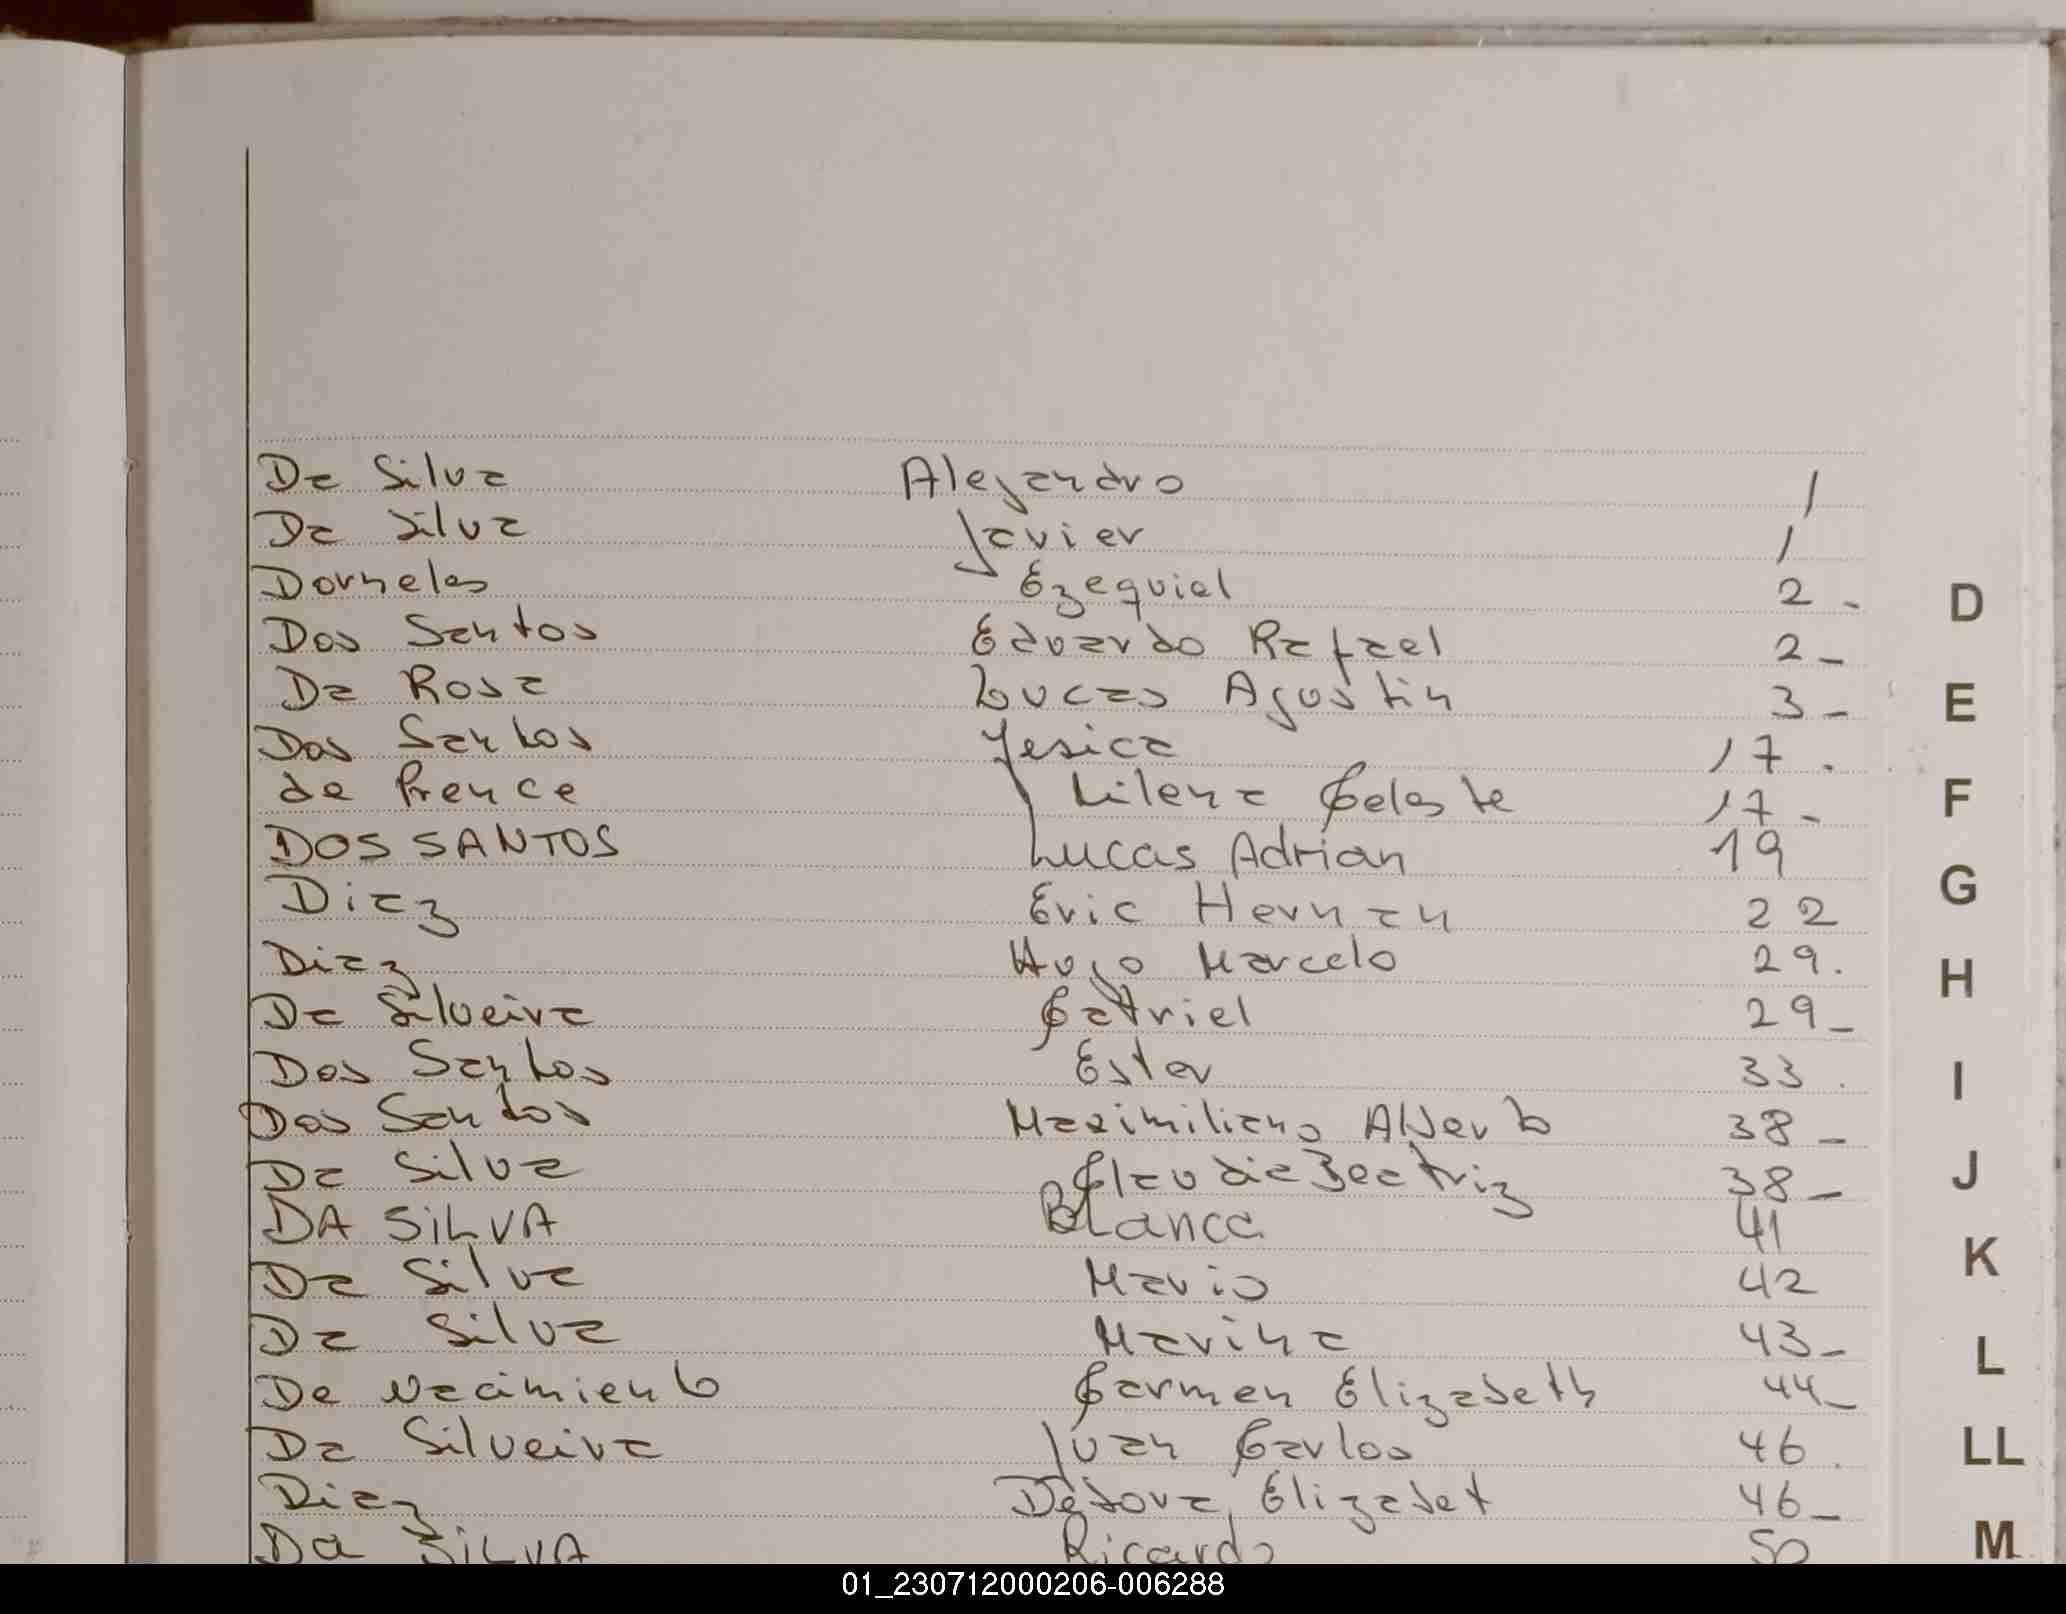 Da Silva Alejandro 1
Da Silva Javier 1
Dorneles Ezequiel 2 -
Dos Santos Eduardo Rafael 2 -
Da Rosa Lucas Agustin 3 -
Dos Santos Yesica 17 .
de Lilena Celeste 17 -
DOS SANTOS Lucas Adrian 19
Diaz Eric Hernan 22
Diaz Hugo Marcelo 29.
Da Silveira Gatriel 29 -
Dos Santos Ester 33 .
Dos Santos Maximiliano Alberto 38 -
Da Silva Claudia Beatriz 38 -
DA SILVA Blanca 41
Da Silva Mario 42
Da Silva Marina 43 -
De Nacimiento Carmen Elizabeth 44 -
Da Silveira Juan Carlos 46 .
Diaz Debora Elizabet 46 -
Da SILVA Ricardo 50
D
E
F
G
H
I
J
K
L
LL
M
01_230712000206-006288